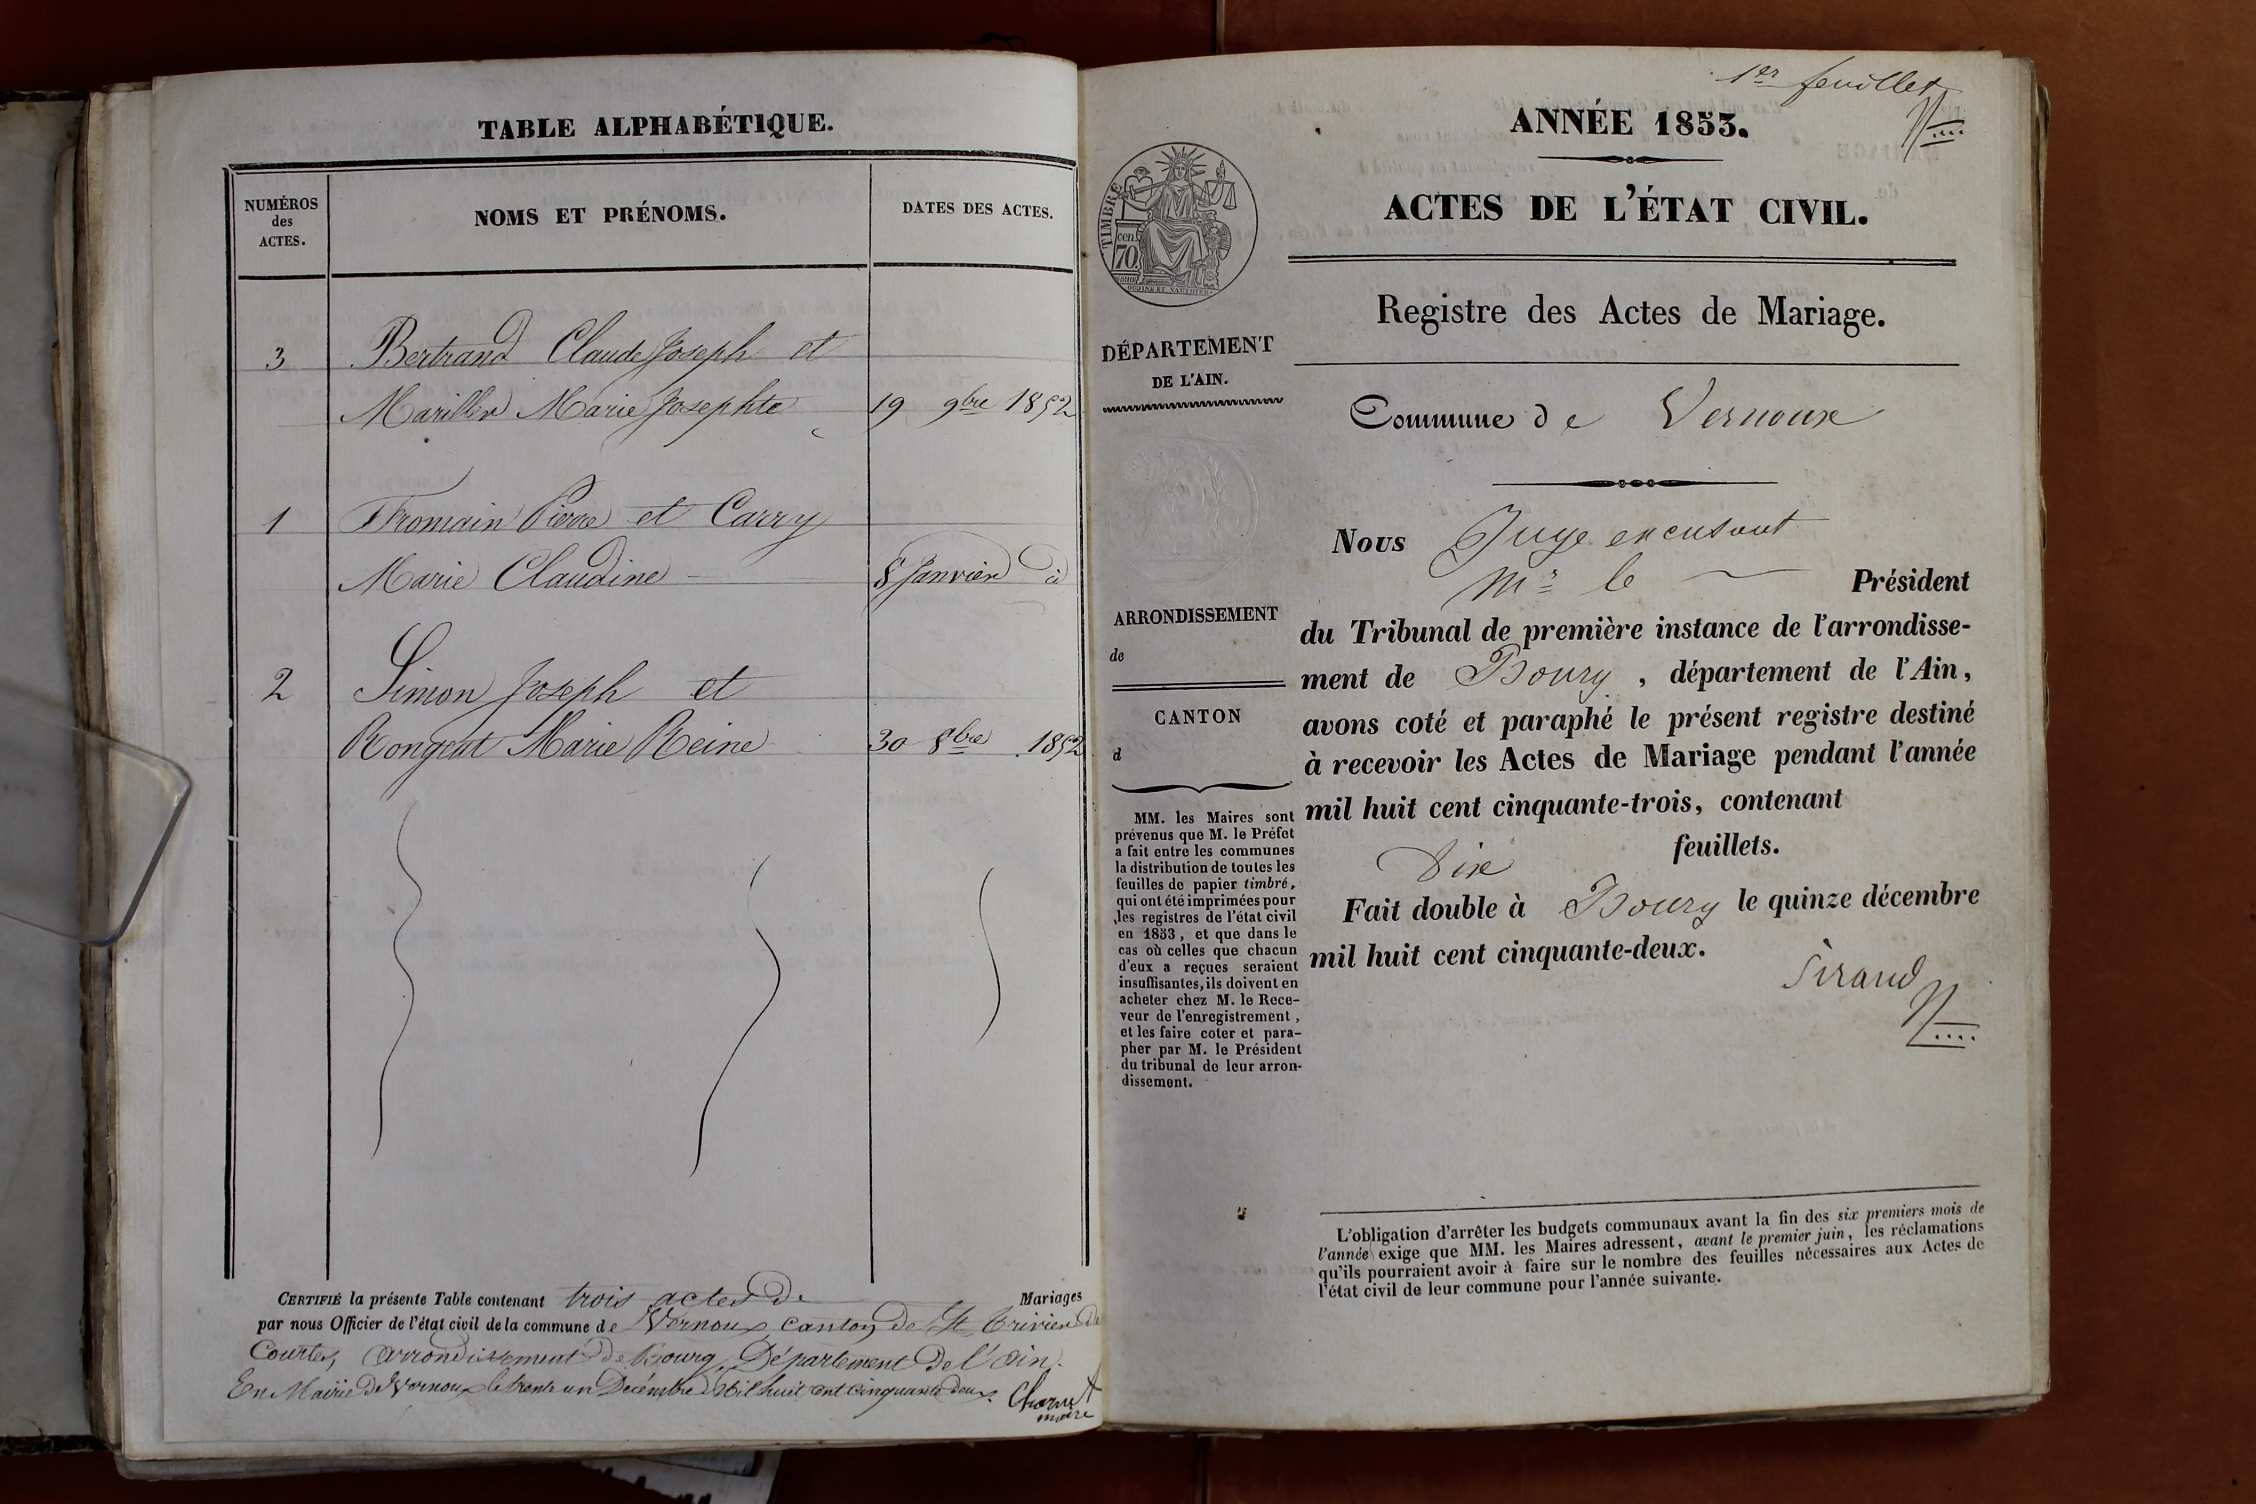 TABLE ALPHABÉTIQUE.
NUMÉROS
des
ACTES.
NOMS ET PRÉNOMS.
DATES DES ACTES.
3 Bertrand Claude Joseph et
Marillier Marie Josephte 19 9bre 1852
1 Fromain Pierre et Carry
Marie Claudine 8 Janvier
2 Simon Joseph et
Rongeat Marie Reine 30 8bre 1852
CERTIFIÉ la présente Table contenant trois actes de Mariages
par nous Officier de l'état civil de la commune de Vernoux, canton de St Trivier de
Courtes, arrondissement de Bourg, Département de l'ain.
En Mairie de Vernoux le trente un Decembre Mil huit cent cinquante deux.
maire
1er feuillet
ANNÉE 1853.
ACTES DE L'ÉTAT CIVIL.
Registre des Actes de Mariage.
Commune de Vernoux
TIMBRE
cen.
70
DÉPARTEMENT
DE L'AIN.
ARRONDISSEMENT
de
CANTON
d
MM. les Maires sont
prévenus que M. le Préfet
a fait entre les communes
la distribution de toutes les
feuilles de papier timbré,
qui ont été imprimées pour
les registres de l'état civil
en 1853, et que dans le
cas où celles que chacun
d'eux a reçues seraient
insuffisantes, ils doivent en
acheter chez M. le Rece-
veur de l'enregistrement,
et les faire coter et para-
pher par M. le Président
du tribunal de leur arron-
dissement.
Nous Juge excusant
Mr le Président
du Tribunal de première instance de l'arrondisse-
ment de Bourg, département de l'Ain,
avons coté et paraphé le présent registre destiné
à recevoir les Actes de Mariage pendant l'année
mil huit cent cinquante-trois, contenant
dix feuillets.
Fait double à Bourg le quinze décembre
mil huit cent cinquante-deux.
Sirand
L'obligation d'arrêter les budgets communaux avant la fin des six premiers mois de
l'année exige que MM. les Maires adressent, avant le premier juin, les réclamations
qu'ils pourraient avoir à faire sur le nombre des feuilles nécessaires aux Actes de
l'état civil de leur commune pour l'année suivante.